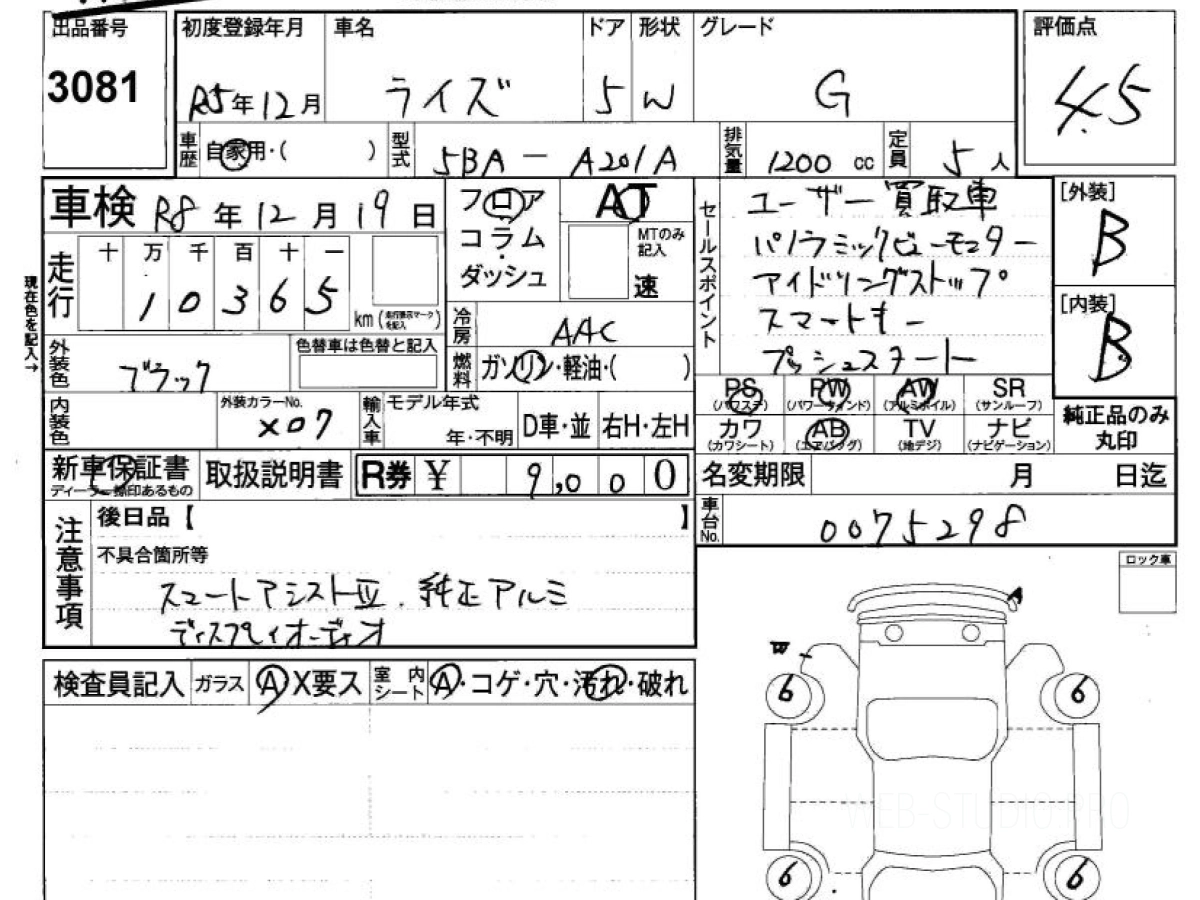 出品番号 初度登録年月 車名 ドア 形状 グレード 評価点
3081 R5年12月 ライズ 5 W G 4.5
車歴 自家用・( ) 型式 5BA - A201A 排気量 1200 cc 定員 5人
車検 R8年12月19日
走行 十 万 千 百 十 一
1 0 3 6 5 km (走行表示マークを記入)
現在色を記入→
外装色 ブラック 色替車は色替と記入
内装色 外装カラーNo. X07 輸入車 モデル年式 年・不明 D車・並 右H・左H
フロア
コラム
ダッシュ
AT
MTのみ記入
速
冷房 AAC
燃料 ガソリン・軽油・( )
セールスポイント
ユーザー買取車
パノラミックビューモニター
アイドリングストップ
スマートキー
プッシュスタート
[外装]
B
[内装]
B
PS PW AW SR
(パワステ) (パワーウィンド) (アルミホイル) (サンルーフ)
カワ AB TV ナビ
(カワシート) (エアバッグ) (地デジ) (ナビゲーション)
純正品のみ
丸印
新車保証書 取扱説明書 R券 ¥ 9,000
ディーラー捺印あるもの
名変期限 月 日迄
車台No. 0075298
注意事項
後日品【 】
不具合箇所等
スマートアシストⅢ. 純正アルミ
ディスプレイオーディオ
ロック車
検査員記入 ガラス A X要ス 室内シート A・コゲ・穴・汚れ・破れ
A
6 6
WEB-STUDIO.PRO
6 6